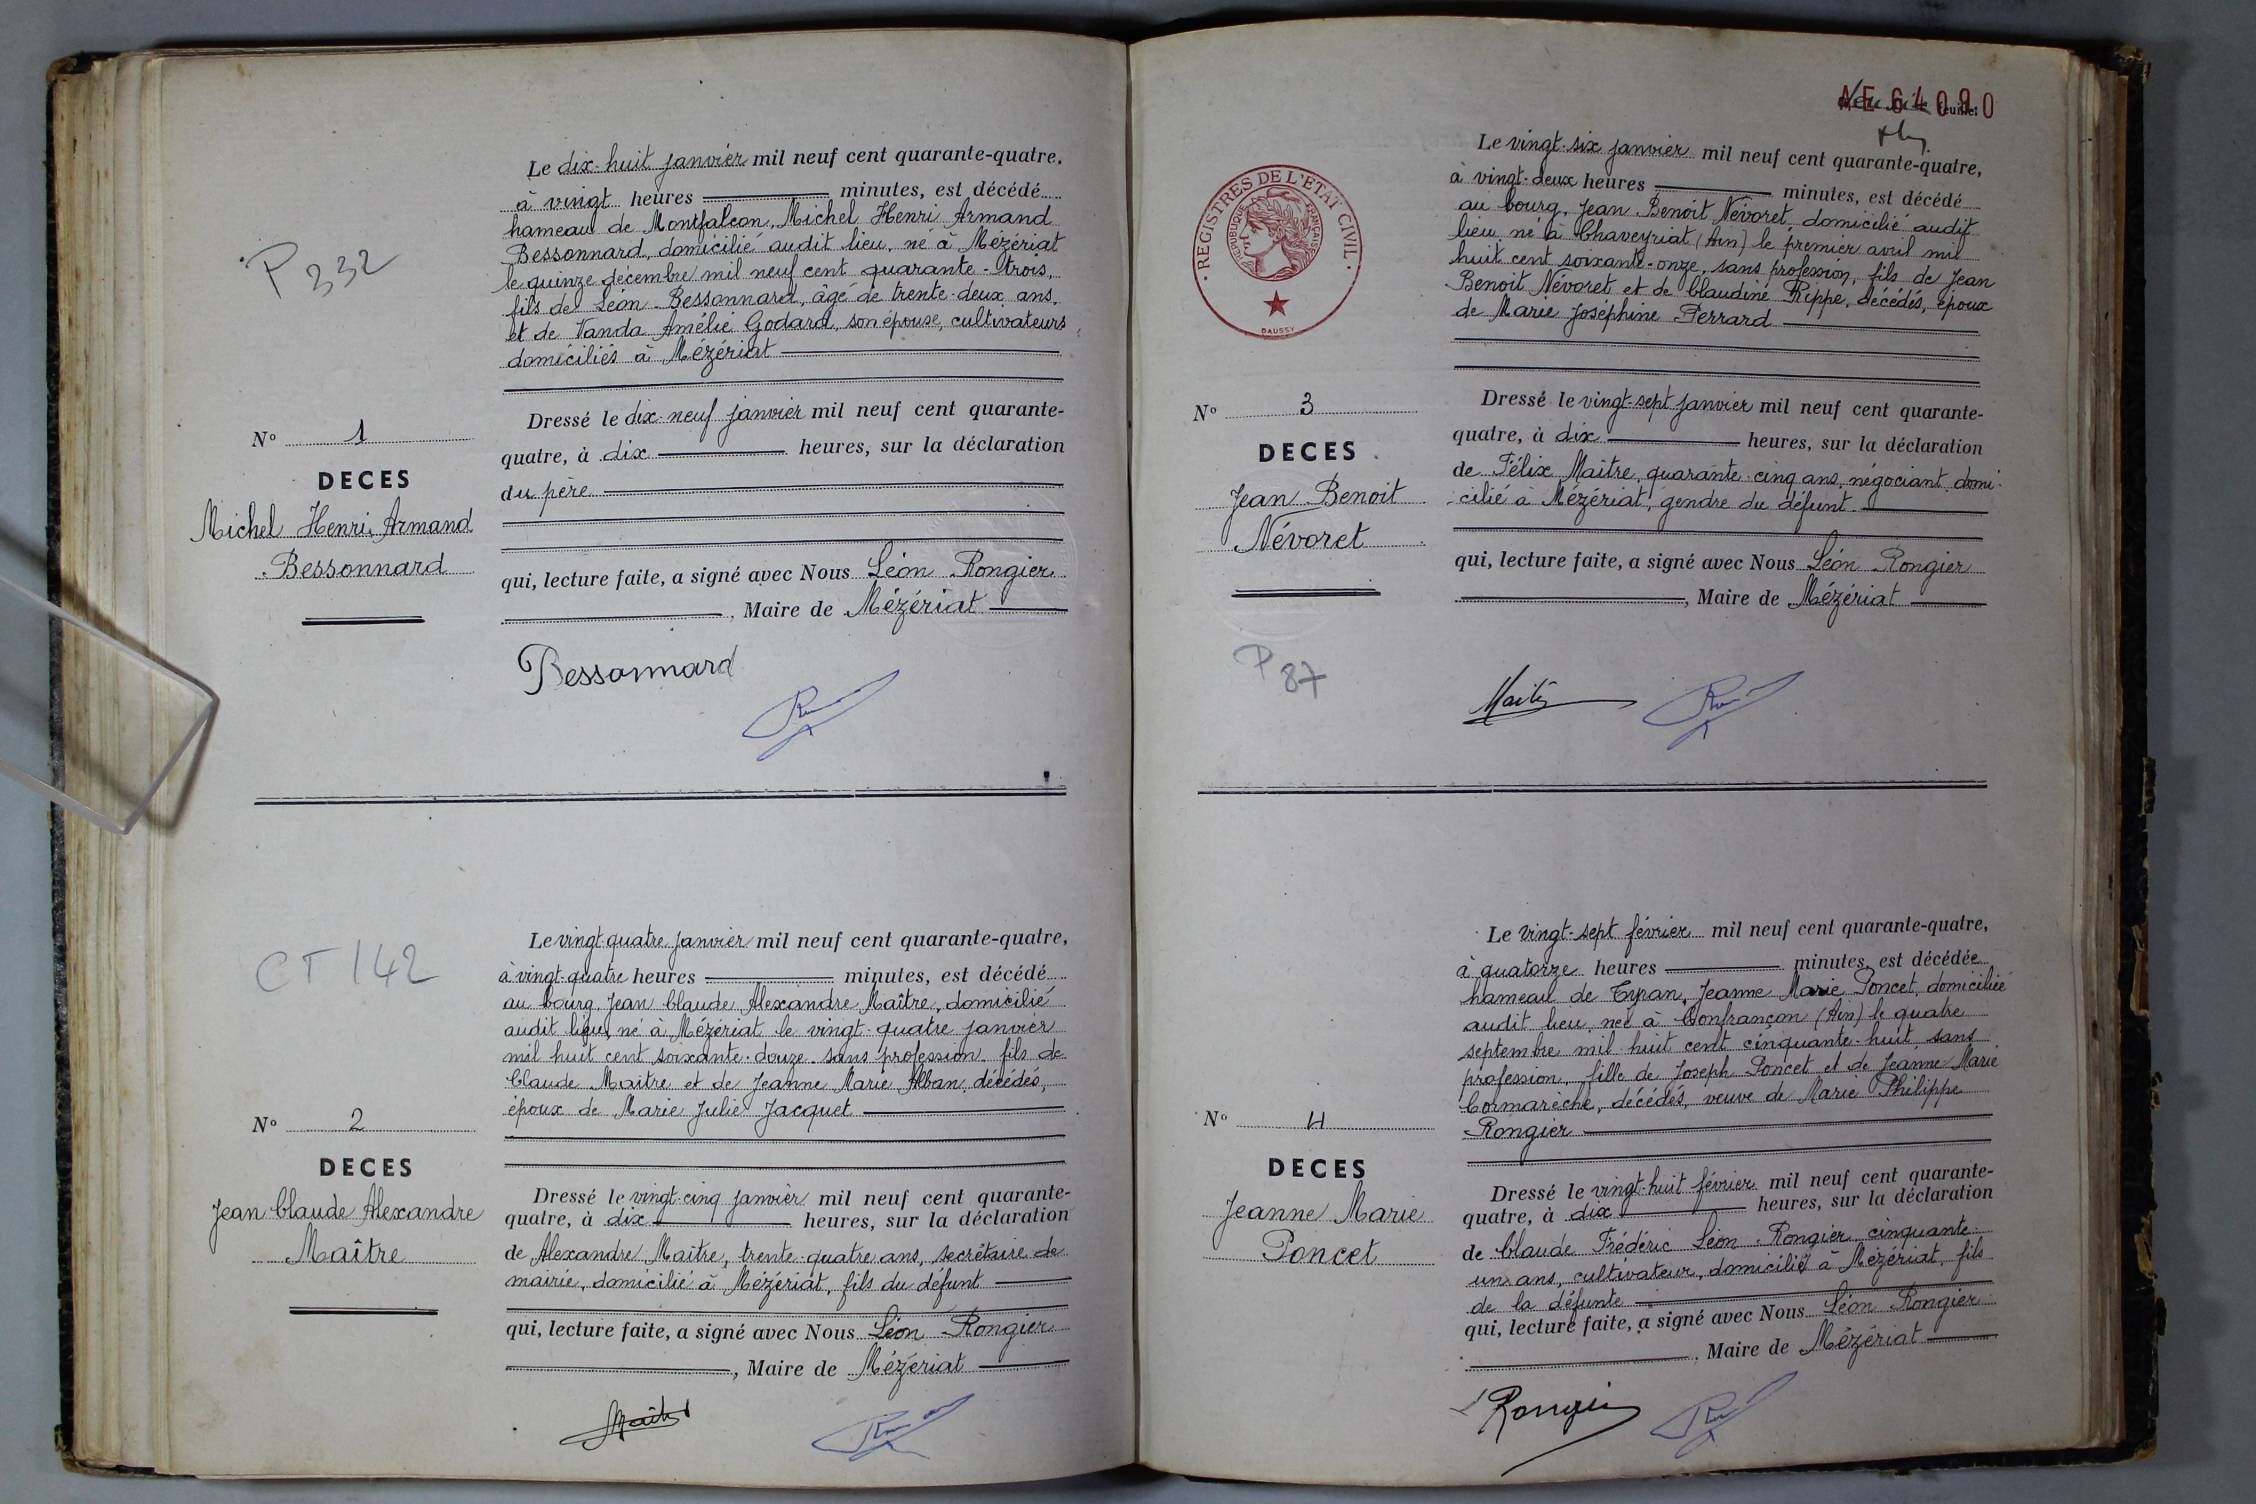 P 332
Le dix-huit janvier mil neuf cent quarante-quatre,
à vingt heures minutes, est décédé
hameau de Montfalcon, Michel Henri Armand
Bessonnard, domicilié audit lieu, né à Mézériat
le quinze décembre mil neuf cent quarante-trois,
fils de Léon Bessonnard, âgé de trente-deux ans,
et de Vanda Amélie Godard, son épouse, cultivateurs
domiciliés à Mézériat
Nº 1
DECES
Michel Henri Armand
Bessonnard
Dressé le dix-neuf janvier mil neuf cent quarante-
quatre, à dix heures, sur la déclaration
du père
qui, lecture faite, a signé avec Nous Léon Rongier
, Maire de Mézériat
Bessonnard
CT 142
Le vingt-quatre janvier mil neuf cent quarante-quatre,
à vingt-quatre heures minutes, est décédé
au bourg, Jean Claude Alexandre Maître, domicilié
audit lieu, né à Mézériat le vingt-quatre janvier
mil huit cent soixante-douze, sans profession, fils de
Claude Maitre et de Jeanne Marie Alban, décédés,
époux de Marie Julie Jacquet
Nº 2
DECES
Jean Claude Alexandre
Maître
Dressé le vingt-cinq janvier mil neuf cent quarante-
quatre, à dix heures, sur la déclaration
de Alexandre Maître, trente-quatre ans, secrétaire de
mairie, domicilié à Mézériat, fils du défunt
qui, lecture faite, a signé avec Nous Léon Rongier
, Maire de Mézériat
Maître
AE 64090
feuillet
REGISTRES DE L'ETAT CIVIL
REPUBLIQUE FRANÇAISE
DAUSSY
Le vingt-six janvier mil neuf cent quarante-quatre,
à vingt-deux heures minutes, est décédé
au bourg, Jean Benoit Névoret, domicilié audit
lieu, né à Chaveyriat (Ain) le premier avril mil
huit cent soixante-onze, sans profession, fils de Jean
Benoit Névoret et de Claudine Rippe, décédés, époux
de Marie Joséphine Perrard
Nº 3
DECES
Jean Benoit
Névoret
Dressé le vingt-sept janvier mil neuf cent quarante-
quatre, à dix heures, sur la déclaration
de Félix Maître, quarante-cinq ans, négociant, domi-
cilié à Mézériat, gendre du défunt
qui, lecture faite, a signé avec Nous Léon Rongier
, Maire de Mézériat
P 87
Le vingt-sept février mil neuf cent quarante-quatre,
à quatorze heures minutes, est décédée
hameau de Tyran, Jeanne Marie Poncet, domiciliée
audit lieu, née à Confrançon (Ain) le quatre
septembre mil huit cent cinquante-huit, sans
profession, fille de Joseph Poncet et de Jeanne Marie
Cormarèche, décédés, veuve de Marie Philippe
Rongier
Nº 4
DECES
Jeanne Marie
Poncet
Dressé le vingt-huit février mil neuf cent quarante-
quatre, à dix heures, sur la déclaration
de Claude Frédéric Léon Rongier, cinquante-
un ans, cultivateur, domicilié à Mézériat, fils
de la défunte
qui, lecture faite, a signé avec Nous Léon Rongier
, Maire de Mézériat
Rongier